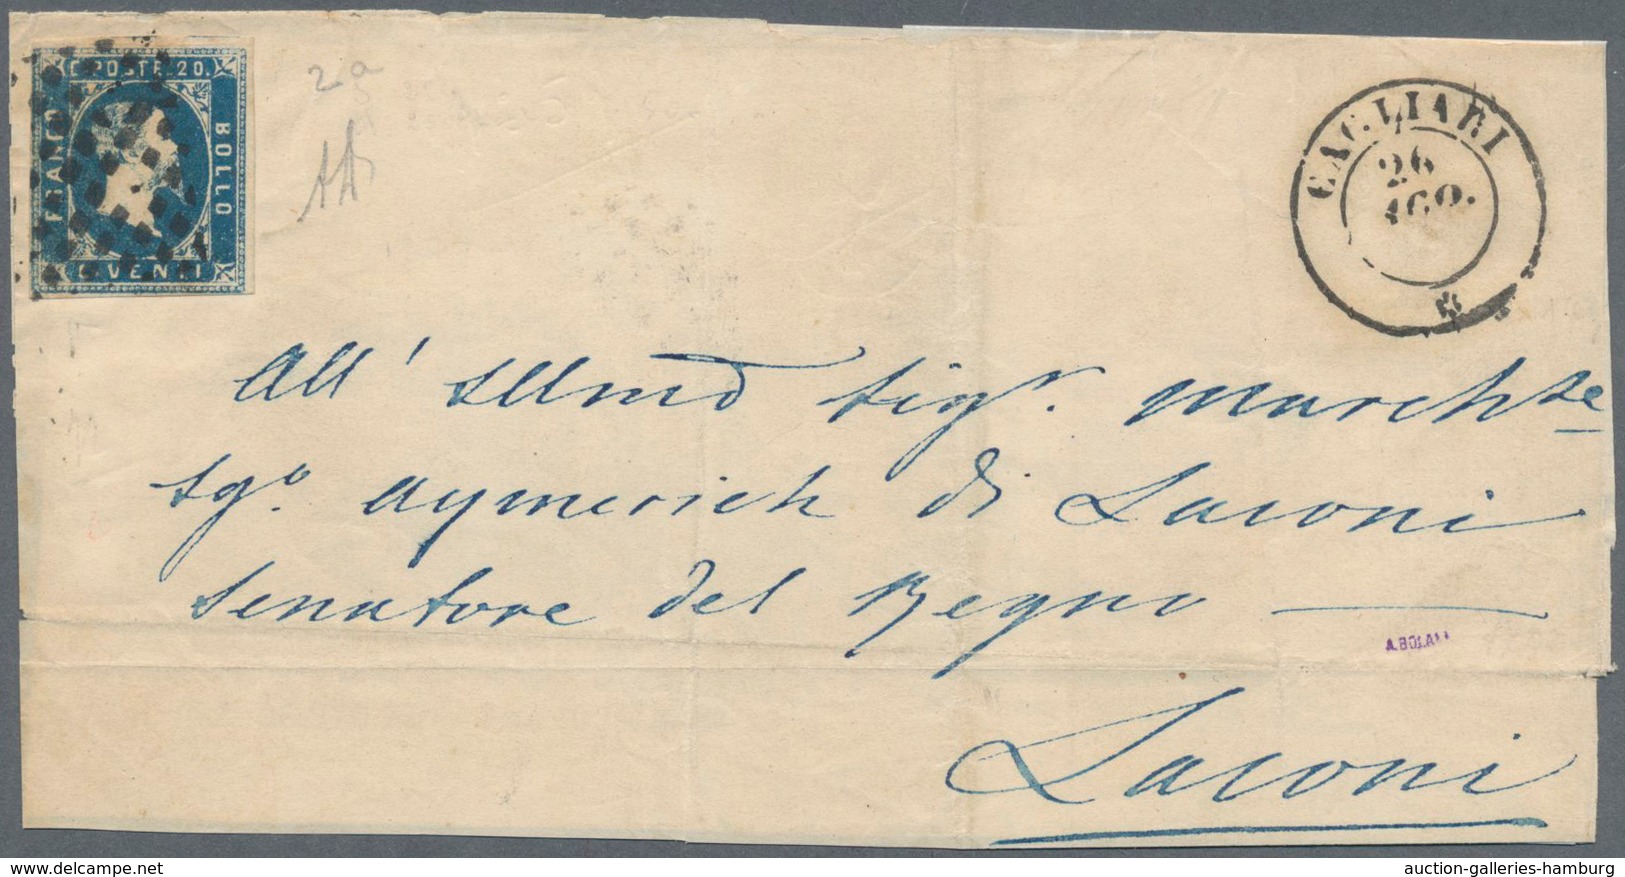 C. POSTE. 20.
FRANCO
BOLLO
C. VENTI
2a
CAGLIARI
26
AGO.
All' Illmo Sigr. Marchte
Sgo. Aymerich di Laconi
Senatore del Regno
A.BOLA
Laconi
auction-galleries-hamburg